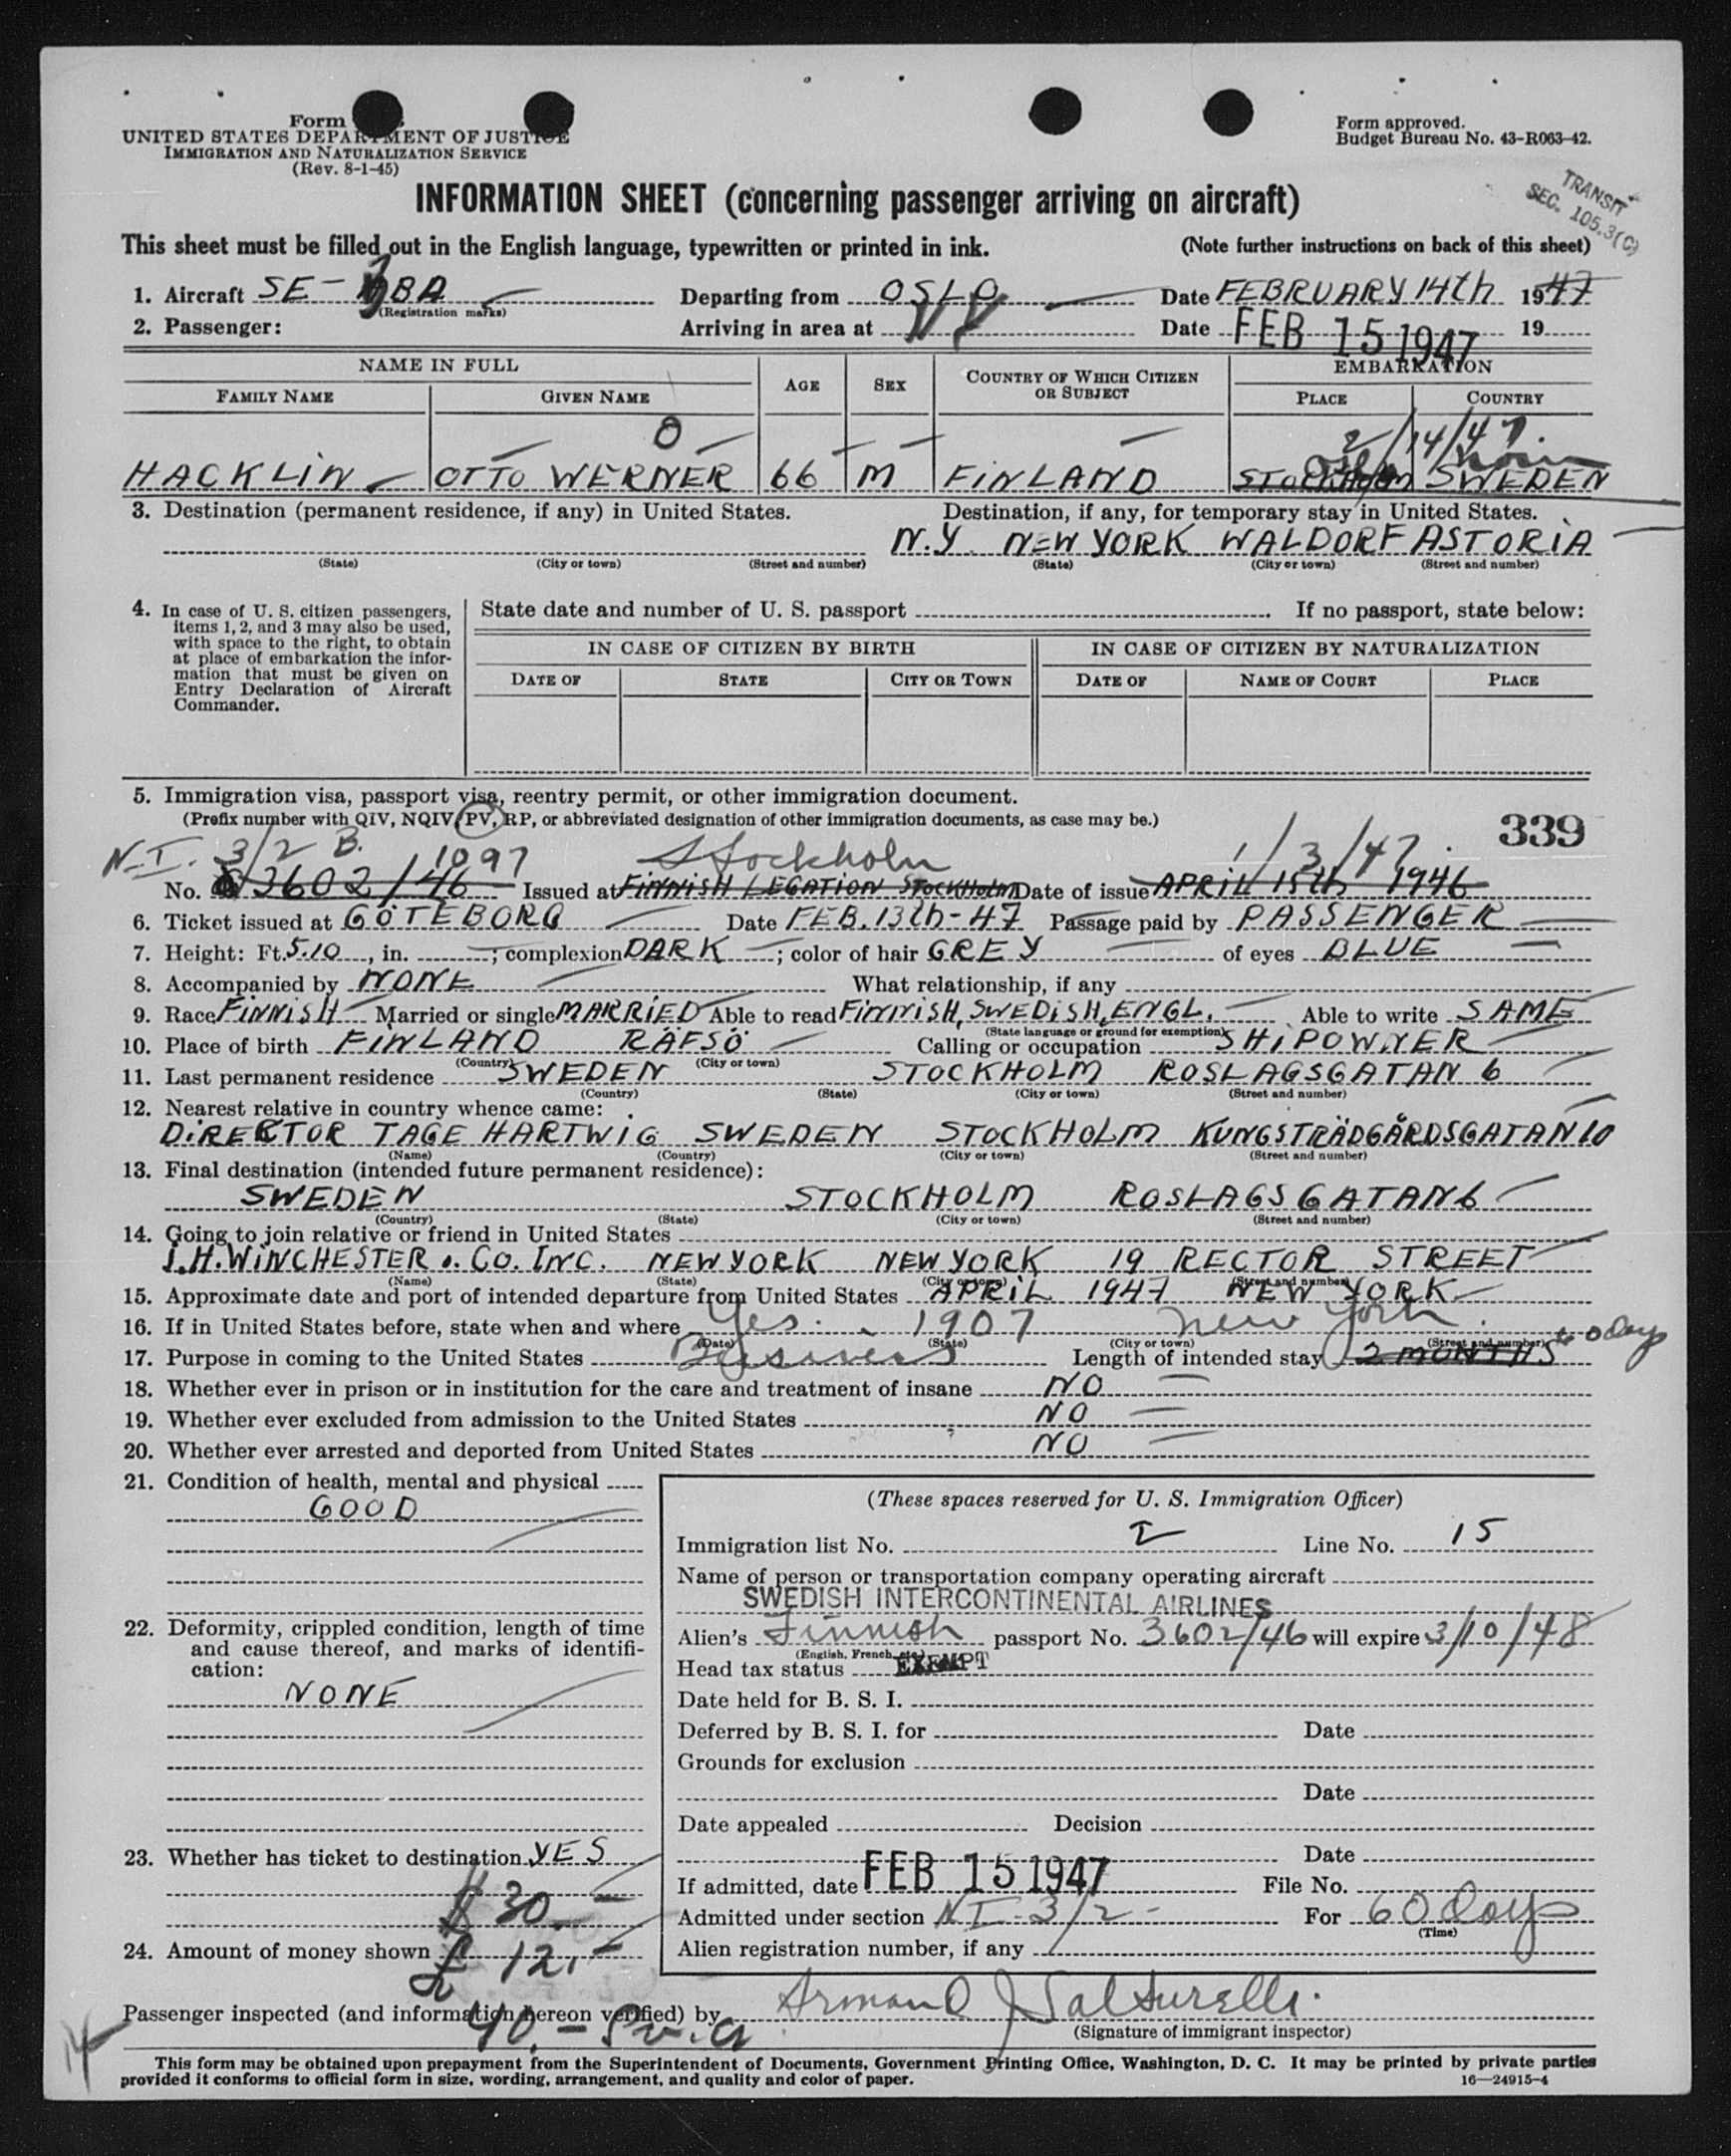 Form
UNITED STATES DEPARTMENT OF JUSTICE
IMMIGRATION AND NATURALIZATION SERVICE
(Rev. 8-1-45)
Form approved.
Budget Bureau No. 43-R063-42.
TRANSIT
SEC. 105.3(C)
INFORMATION SHEET (concerning passenger arriving on aircraft)
This sheet must be filled out in the English language, typewritten or printed in ink. (Note further instructions on back of this sheet)
1. Aircraft SE- BA Departing from OSLO Date FEBRUARY 14th 1947
(Registration marks)
2. Passenger: Arriving in area at NY Date FEB 15 1947 19
NAME IN FULL AGE SEX COUNTRY OF WHICH CITIZEN OR SUBJECT EMBARKATION
FAMILY NAME GIVEN NAME PLACE COUNTRY
0 2/14/47.
Oslo Norw
HACKLIN OTTO WERNER 66 M FINLAND STOCKHOLM SWEDEN
3. Destination (permanent residence, if any) in United States. Destination, if any, for temporary stay in United States.
N.Y. NEW YORK WALDORF ASTORIA
(State) (City or town) (Street and number) (State) (City or town) (Street and number)
4. In case of U. S. citizen passengers, items 1, 2, and 3 may also be used, with space to the right, to obtain at place of embarkation the information that must be given on Entry Declaration of Aircraft Commander.
State date and number of U. S. passport If no passport, state below:
IN CASE OF CITIZEN BY BIRTH IN CASE OF CITIZEN BY NATURALIZATION
DATE OF STATE CITY OR TOWN DATE OF NAME OF COURT PLACE
5. Immigration visa, passport visa, reentry permit, or other immigration document.
(Prefix number with QIV, NQIV, PV, RP, or abbreviated designation of other immigration documents, as case may be.) 339
N-I. 3/2 B. 1097 Stockholm 1/3/47.
No. 3602/46 Issued at FINNISH LEGATION STOCKHOLM Date of issue APRIL 15th 1946
6. Ticket issued at GÖTEBORG Date FEB. 13th-47 Passage paid by PASSENGER
7. Height: Ft. 5.10, in. ; complexion DARK ; color of hair GREY of eyes BLUE
8. Accompanied by NONE What relationship, if any
9. Race FINNISH Married or single MARRIED Able to read FINNISH, SWEDISH, ENGL. Able to write SAME
(State language or ground for exemption)
10. Place of birth FINLAND RÄFSÖ Calling or occupation SHIPOWNER
(Country) (City or town)
11. Last permanent residence SWEDEN STOCKHOLM ROSLAGSGATAN 6
(Country) (State) (City or town) (Street and number)
12. Nearest relative in country whence came:
DIREKTOR TAGE HARTWIG SWEDEN STOCKHOLM KUNGSTRÄDGÅRDSGATAN 10
(Name) (Country) (City or town) (Street and number)
13. Final destination (intended future permanent residence):
SWEDEN STOCKHOLM ROSLAGSGATAN 6
(Country) (State) (City or town) (Street and number)
14. Going to join relative or friend in United States
I.H. WINCHESTER o. CO. INC. NEW YORK NEW YORK 19 RECTOR STREET
(Name) (State) (City or town) (Street and number)
15. Approximate date and port of intended departure from United States APRIL 1947 NEW YORK
16. If in United States before, state when and where Yes. 1907 New York.
(Date) (State) (City or town) (Street and number)
17. Purpose in coming to the United States Business Length of intended stay 2 MONTHS 60 days
18. Whether ever in prison or in institution for the care and treatment of insane NO
19. Whether ever excluded from admission to the United States NO
20. Whether ever arrested and deported from United States NO
21. Condition of health, mental and physical
GOOD
22. Deformity, crippled condition, length of time and cause thereof, and marks of identification:
NONE
23. Whether has ticket to destination YES
$ 30.-
24. Amount of money shown £ 12.-
40.-
(These spaces reserved for U. S. Immigration Officer)
Immigration list No. 2 Line No. 15
Name of person or transportation company operating aircraft
SWEDISH INTERCONTINENTAL AIRLINES
Alien's Finnish passport No. 3602/46 will expire 3/10/48
(English, French, etc.)
Head tax status EXEMPT
Date held for B. S. I.
Deferred by B. S. I. for Date
Grounds for exclusion
Date
Date appealed Decision
Date
If admitted, date FEB 15 1947 File No.
Admitted under section N I - 3/2 - For 60 days
(Time)
Alien registration number, if any
Passenger inspected (and information hereon verified) by Armand J Salturelli.
(Signature of immigrant inspector)
14
This form may be obtained upon prepayment from the Superintendent of Documents, Government Printing Office, Washington, D. C. It may be printed by private parties
provided it conforms to official form in size, wording, arrangement, and quality and color of paper. 16—24915-4